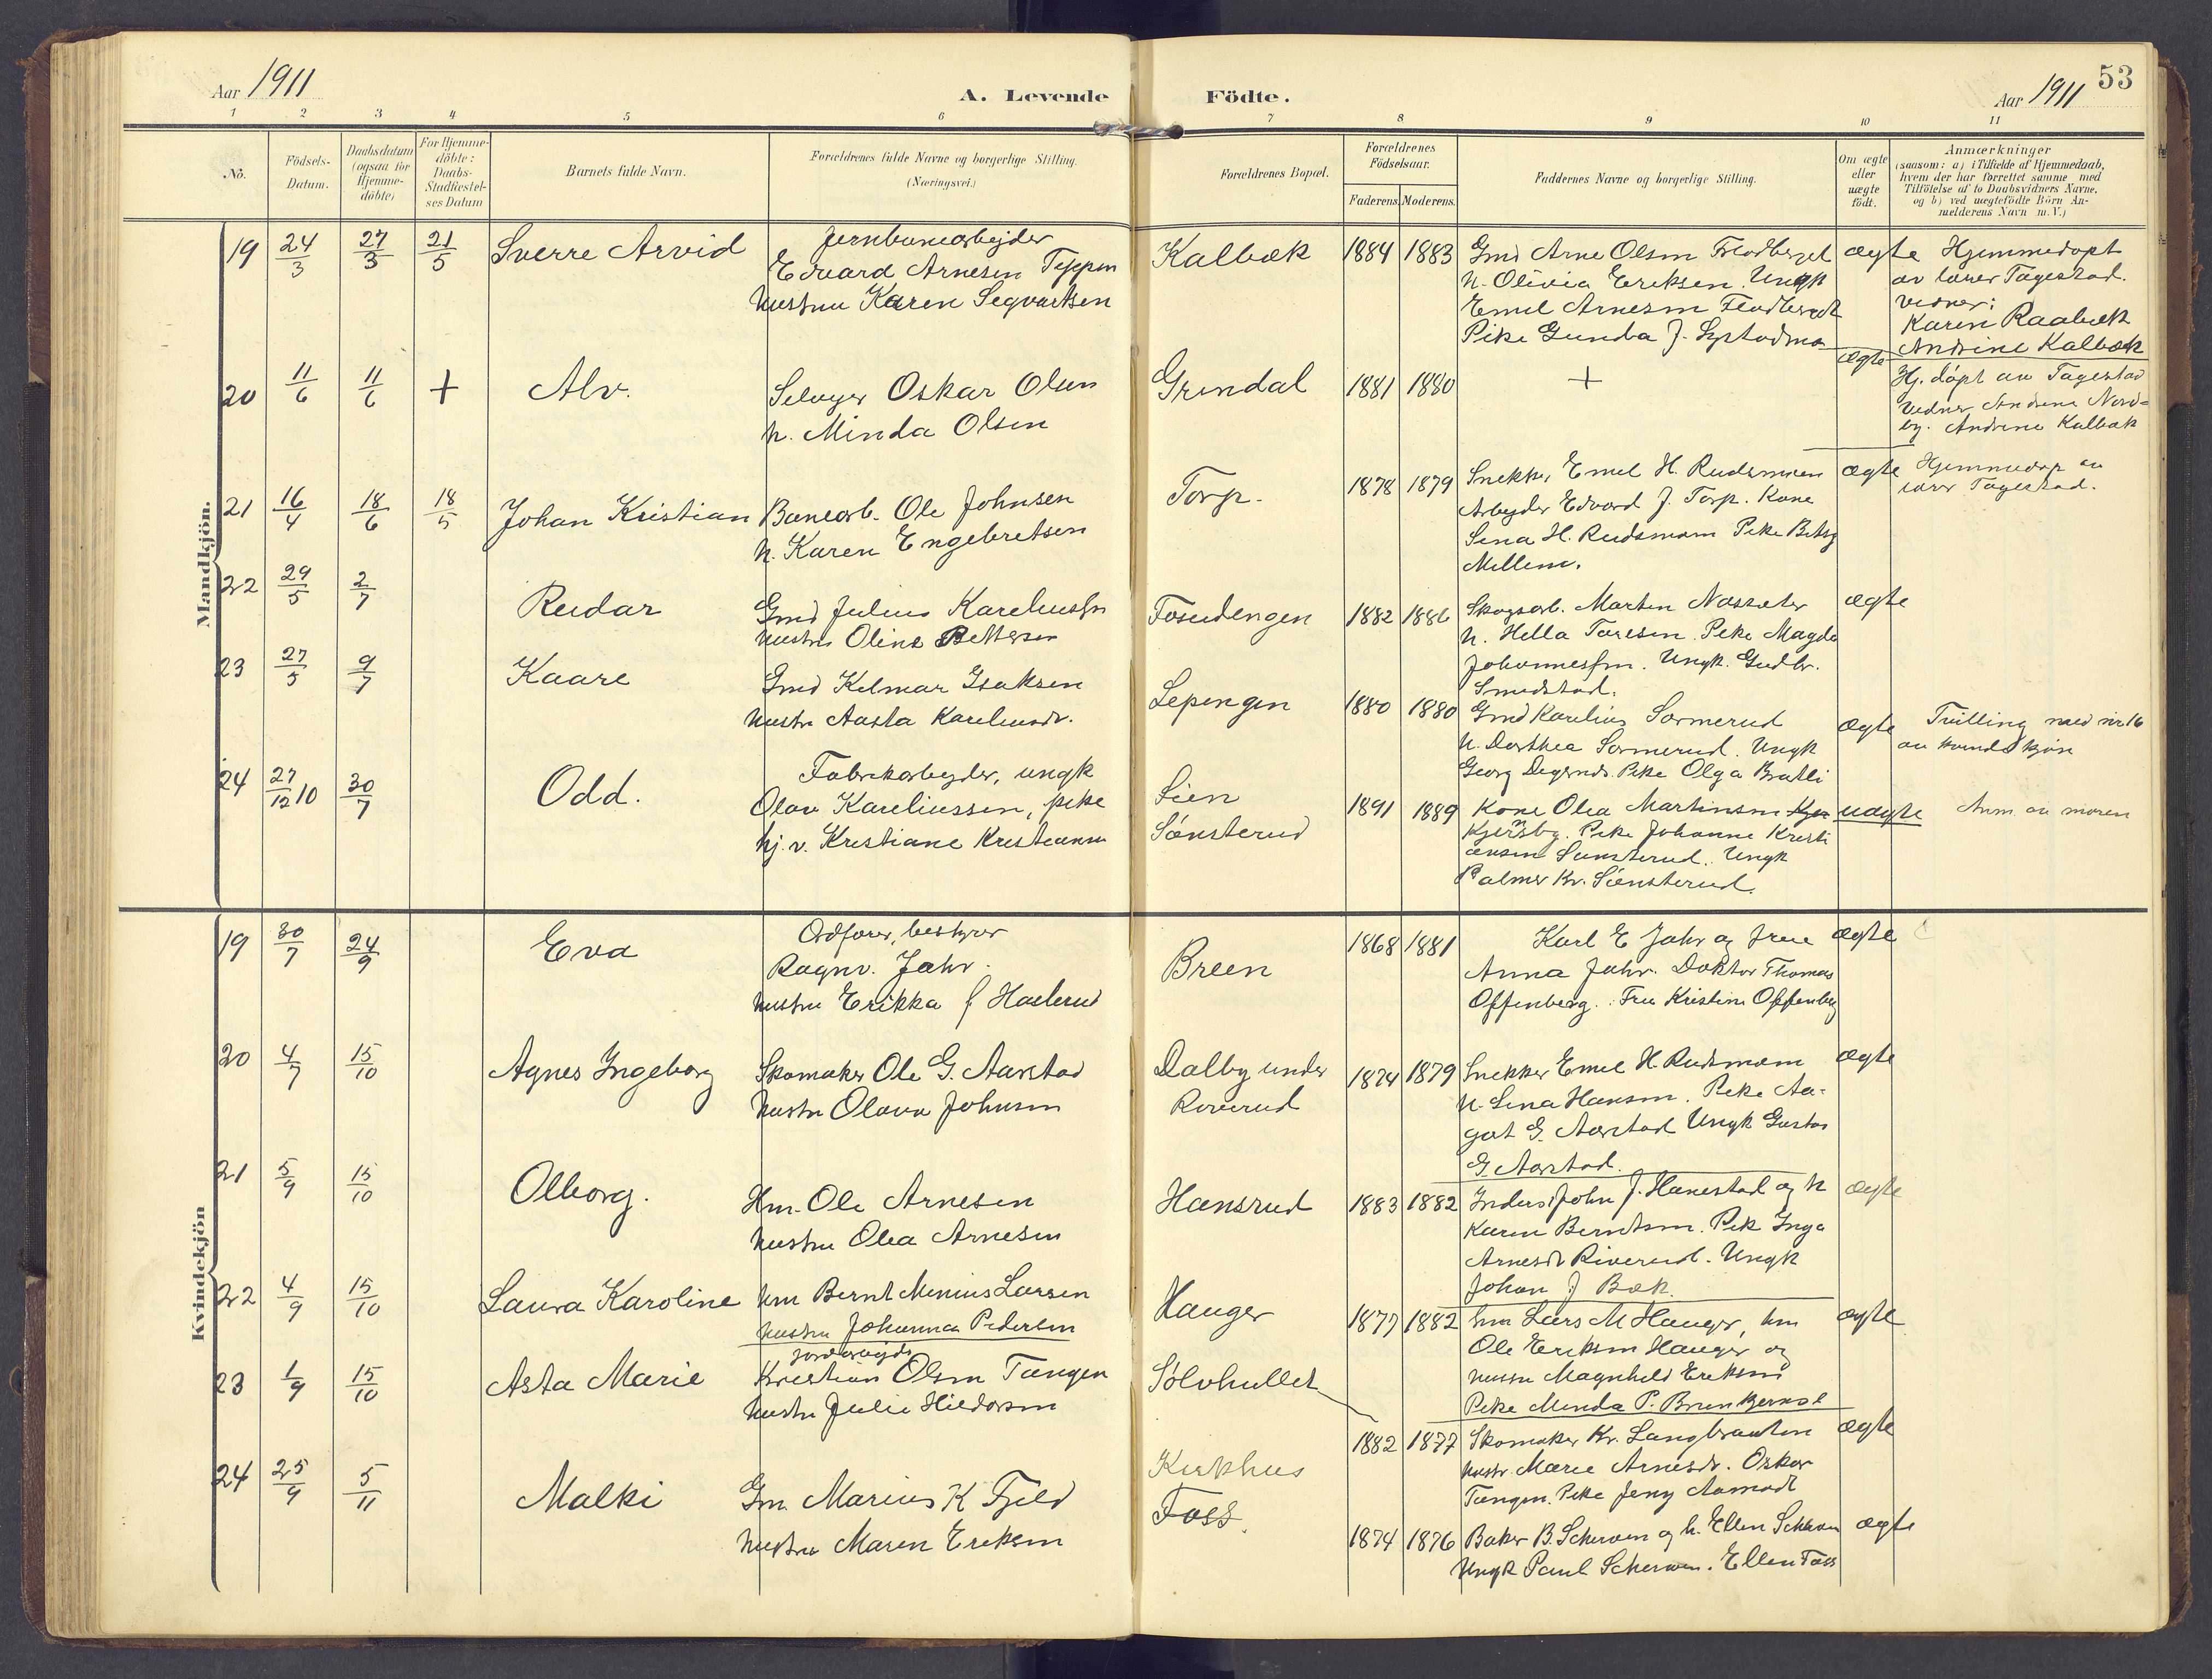 Aar 1911
A. Levende Födte.
Aar 1911
53
1 2 3 4 5 6 7 8 9 10 11
No.
Födsels-
Datum.
Daabsdatum
(ogsaa for
Hjemme-
döbte)
For Hjemme-
döbte:
Daabs-
Stadfæstel-
ses Datum
Barnets fulde Navn.
Forældrenes fulde Navne og borgerlige Stilling.
(Næringsvei.)
Forældrenes Bopæl.
Forældrenes
Födselsaar.
Faderens. Moderens.
Faddernes Navne og borgerlige Stilling.
Om ægte
eller
uægte
födt.
Anmærkninger
(saasom: a) i Tilfælde af Hjemmedaab,
hvem der har forrettet samme med
Tilföielse af to Daabsvidners Navne,
og b) ved uægtefödte Börn An-
melderens Navn m. V.)
Mandkjön.
19 24/3 27/3 21/5 Sverre Arvid
Jernbanearbejder
Edvard Arnesen Teppen
hustru Karen Segvartsen
Kalbæk 1884 1883
Gmd Arne Olsen Flodberget
h. Olivia Eriksen. Ungk
Emil Arnesen Flodberget
Pike Gunda J.
ægte
Hjemmedøpt
av lærer Tagestad.
Vidner:
Karen Raabæk
Andrine Kalbæk
20 11/6 11/6 + Alv.
Selveyer Oskar Olsen
h. Minda Olsen
Grindal 1881 1880 +
ægte
Hj. døpt av Tagestad
Vidner Andrine Nord-
by. Andrine Kalbæk
21 16/4 18/6 18/5 Johan Kristian
Banearb. Ole Johnsen
h. Karen Engebretsen
Torp. 1878 1879
Snekker Emil H. Rudsmoen
Arbejder Edvard J. Torp. Kone
Lina H. Rudsmoen Pike Betsy
Millem.
ægte
Hjemmedøp av
lærer Tagestad.
22 29/5 2/7 Reidar
Gmd Julius Kareliussen
hustru Oline Pettersen
Fosudengen 1882 1886
Skogsarb. Martin Næssæter
h. Hella Toresen. Pike Magda
Johannessen. Ungk. Gudbr.
Smedstad.
ægte
23 27/5 9/7 Kaare
Gmd Hilmar Isaksen
hustru Aasta Kareliusdr.
Lepengen 1880 1880
Gmd Karelius Sormerud
h. Dorthea Sormerud. Ungk
Georg Degernds. Pike Olga Bratli
ægte
Tvilling med nr 16
av kvindekjøn
24 27/12 10 30/7 Odd.
Fabrikarbeyder, ungk
Olav Kareliussen, pike
hj. v. Kristiane Kristiansen
Lien
Sønsterud
1891 1889
Kone Olea Martinsen
Kjernsby. Pike Johanne Kristi
ansen Sønsterud. Ungk
Palmer Kr. Sønsterud.
uægte
Anm. av moren
Kvindekjön
19 30/7 24/9 Eva
Ordfører, bestyrer
Ragnv. Jahr.
hustru Erikka f Haslerud
Breen 1868 1881
Karl E Jahr og frue
Anna Jahr. Doktor Thomas
Offenberg. Fru Kristine Offenberg
ægte
20 4/7 15/10 Agnes Ingeborg
Skomaker Ole G. Aarstad
hustru Olava Johnsen
Dalby under
Roverud
1874 1879
Snekker Emil H. Rudsmoen
h. Lina Hansen. Pike Aa-
got G. Aarstad Ungk Gustav
G. Aarstad.
ægte
21 5/9 15/10 Olborg.
Hm. Ole Arnesen
hustru Olea Arnesen
Hansrud 1883 1882
Inders. John J. Hanestad og h
Karen Berntsen. Pike Inga
Arnesdr Riverud. Ungk
Johan J Bæk.
ægte
22 4/9 15/10 Laura Karoline
hm Bernt Minius Larsen
hustru Johanna Pedersen
Hauger 1877 1882
hm Lars M Hauger, hm
Ole Eriksen Hauger og
hustru Magnhild Eriksen
Pike Minda P.
ægte
23 1/9 15/10 Asta Marie
jordarbejder
Kristian Olsen Tangen
hustru Julie Hildorsen
Sølvhullet 1882 1877
Skomaker Kr. Langbraaten
hustr. Marie Arnesdr. Oskar
Tangen. Pike Jeny Aamodt
ægte
24 25/9 5/11 Malki
Gm. Marius K Fjeld
hustru Maren Eriksen
Kirkhus
Foss.
1874 1876
Baker B. Scherven og h. Ellen Scherven
Ungk Paul Scherven. Ellen Foss
ægte